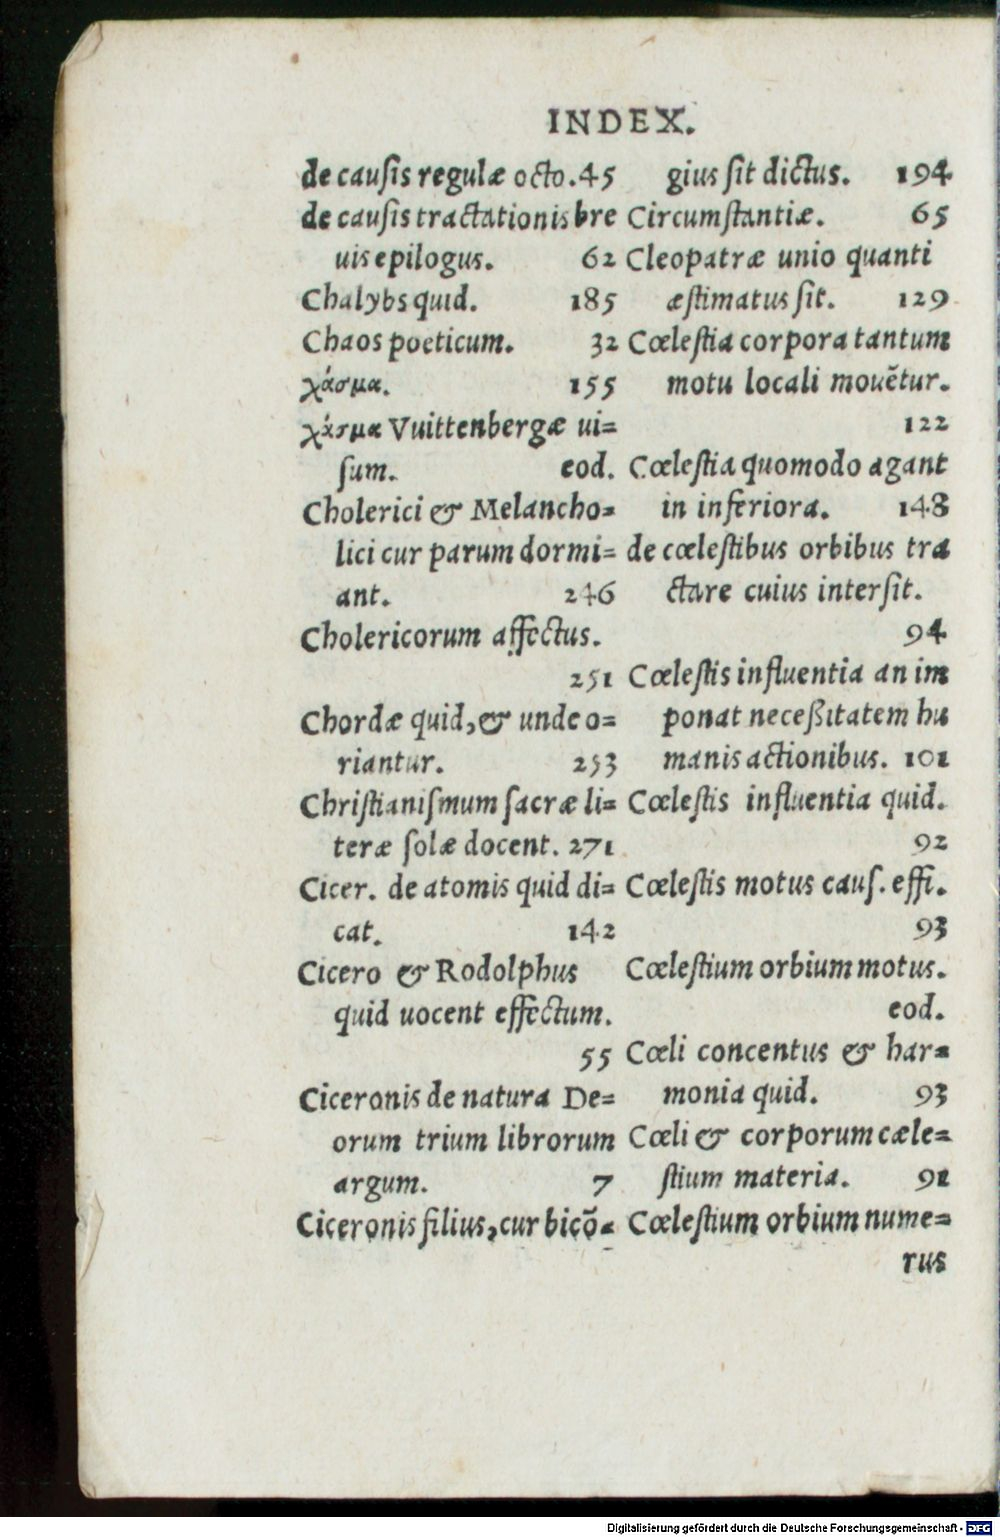 INDEX.
de causis regulæ octo. 45
de causis tractationis bre
uis epilogus. 62
Chalybs quid. 185
Chaos poeticum. 32
χάσμα. 155
χάσμα Vuittenbergæ ui=
sum. eod.
Cholerici & Melancho=
lici cur parum dormi=
ant. 246
Cholericorum affectus.
251
Chordæ quid, & unde o=
riantur. 253
Christianismum sacræ li=
teræ solæ docent. 271
Cicer. de atomis quid di=
cat. 142
Cicero & Rodolphus
quid uocent effectum.
55
Ciceronis de natura De=
orum trium librorum
argum. 7
Ciceronis filius, cur bicō=
gius sit dictus. 194
Circumstantiæ. 65
Cleopatræ unio quanti
æstimatus sit. 129
Cœlestia corpora tantum
motu locali mouẽtur.
122
Cœlestia quomodo agant
in inferiora. 148
de cœlestibus orbibus tra
ctare cuius intersit.
94
Cœlestis influentia an im
ponat neceßitatem hu
manis actionibus. 101
Cœlestis influentia quid.
92
Cœlestis motus caus. effi.
93
Cœlestium orbium motus.
eod.
Cœli concentus & har=
monia quid. 93
Cœli & corporum cæle=
stium materia. 91
Cœlestium orbium nume=
rus
Digitalisierung gefördert durch die Deutsche Forschungsgemeinschaft - DFG